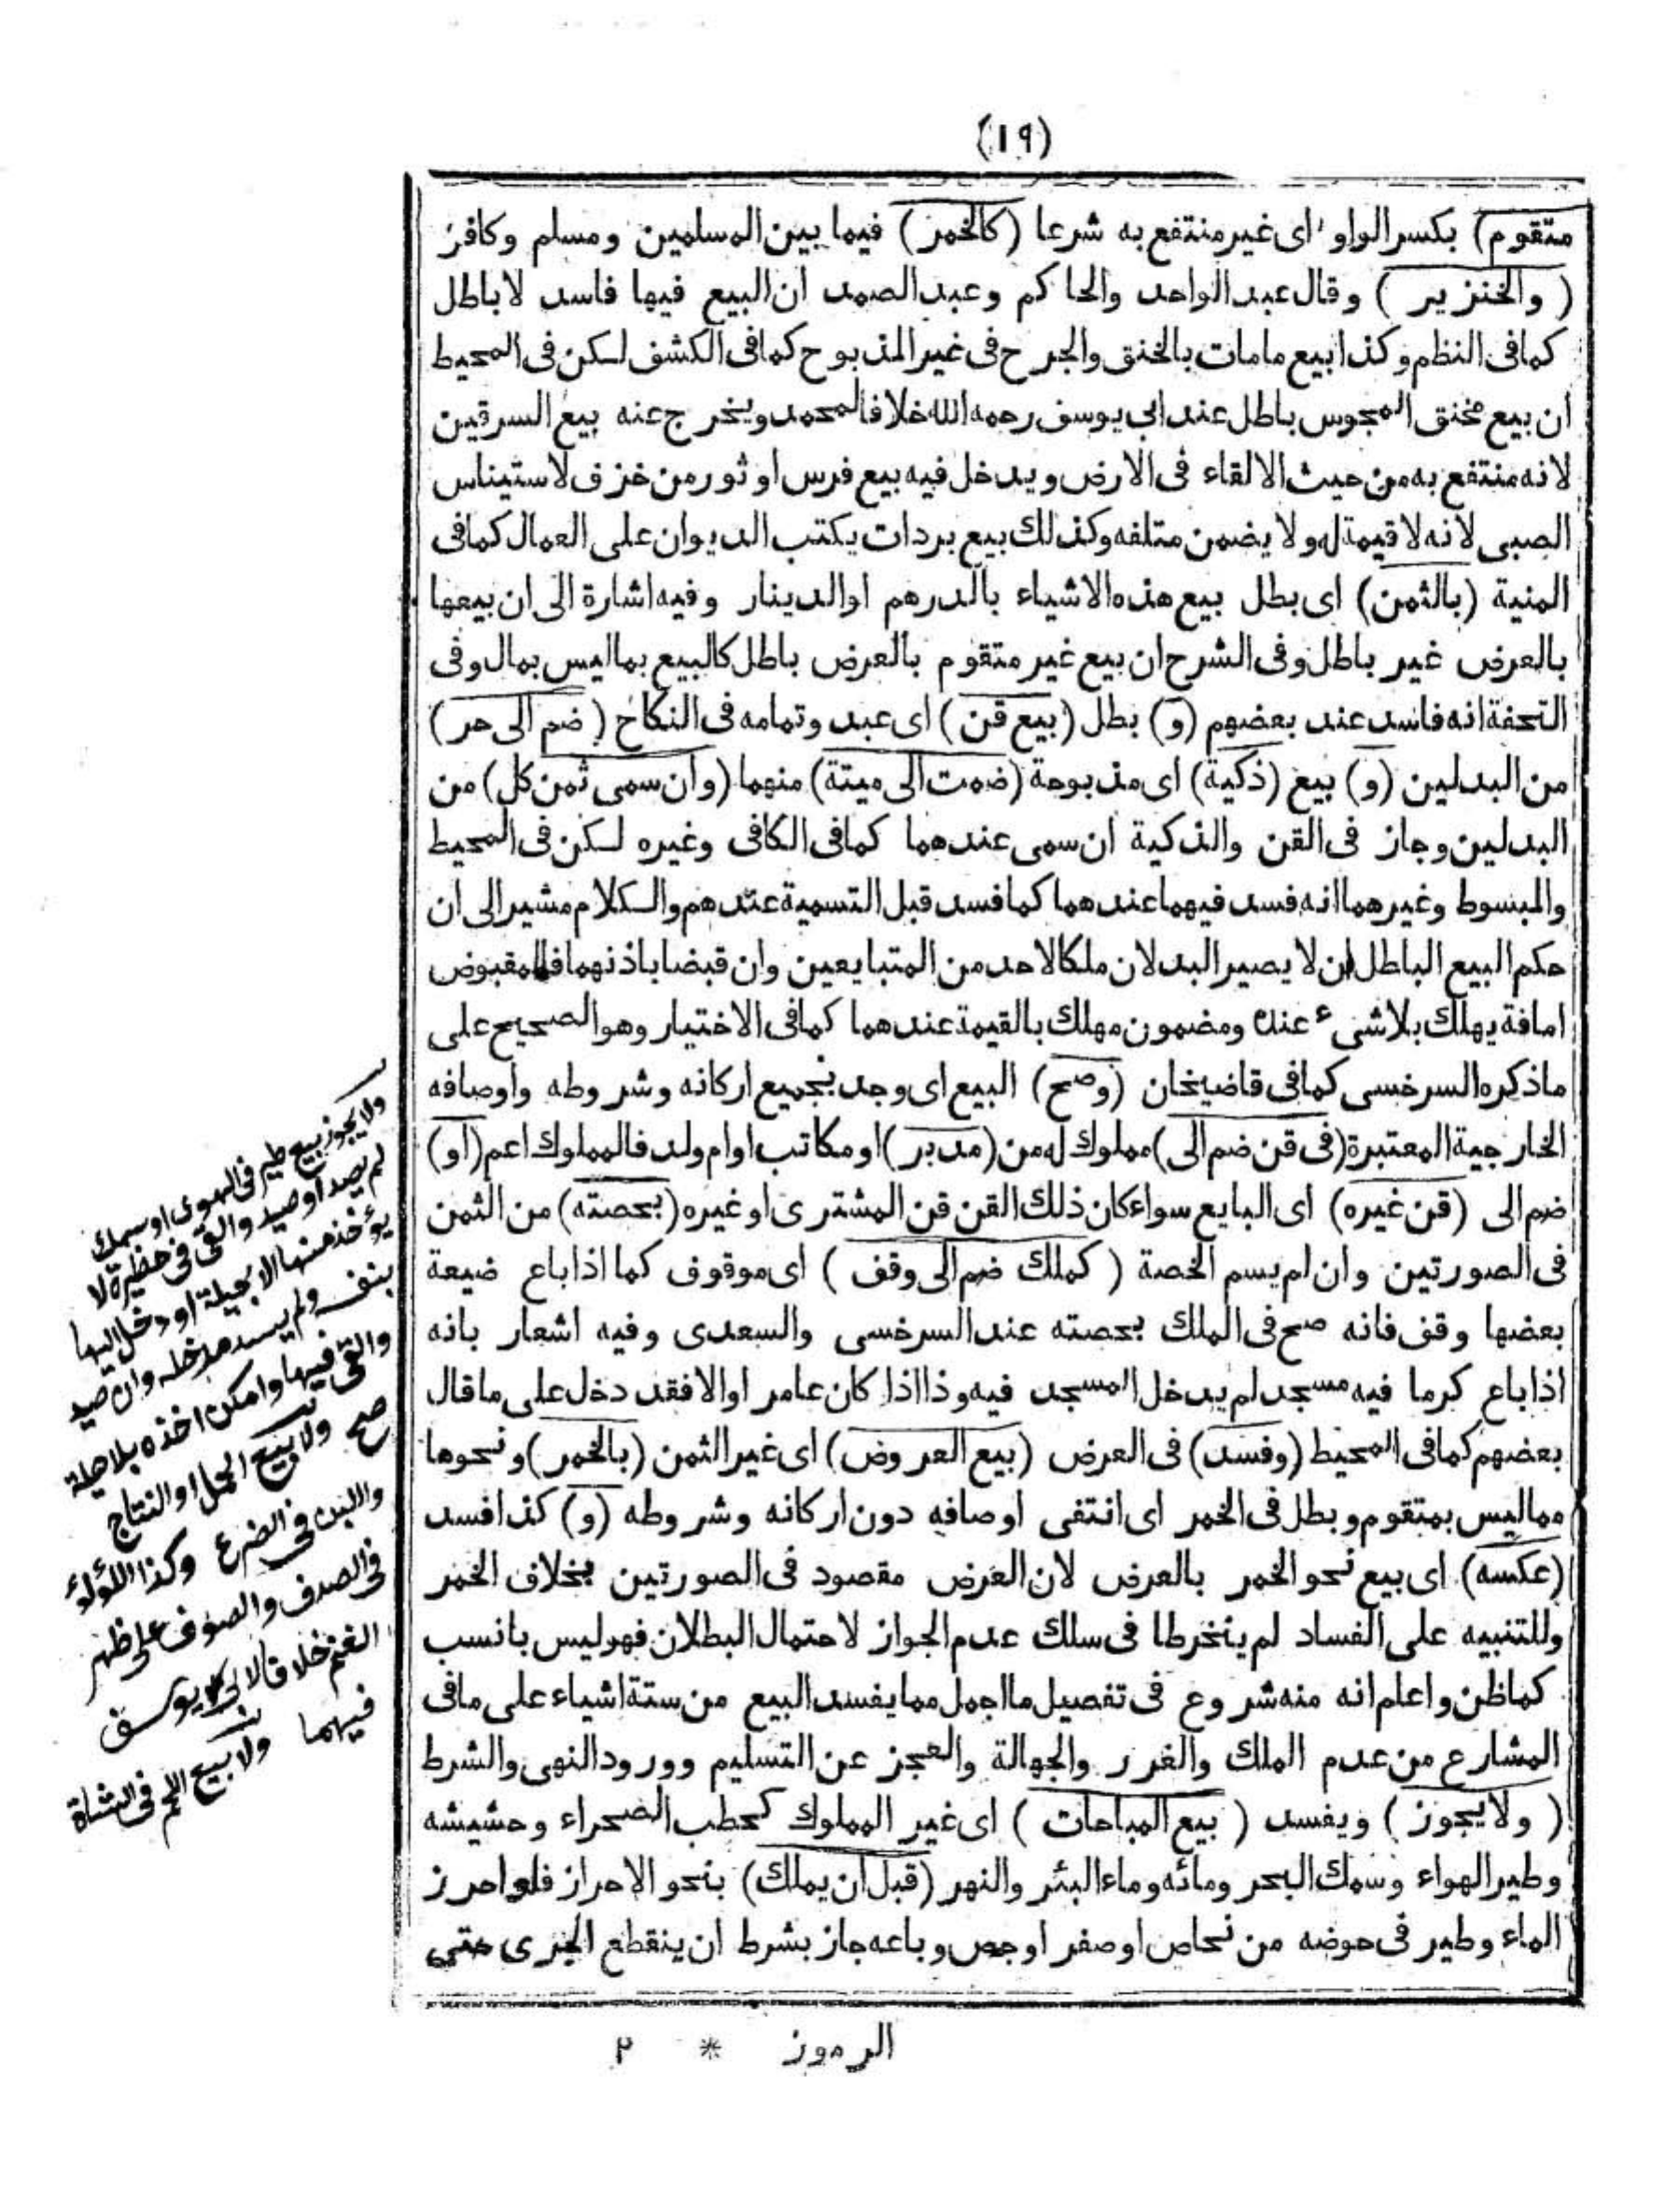 (١٩)
متقوم) بكسر الواو اى غير منتفع به شرعا (كالخمر) فيما بين المسلمين ومسلم وكافر
(والخنزير) وقال عبد الواحد والحاكم وعبد الصمد ان البيع فيها فاسد لا باطل
كما فى النظم وكذا بيع ما مات بالخنق والجرح فى غير المذبوح كما فى الكشف لكن فى المحيط
ان بيع مخنق المجوس باطل عند ابى يوسف رحمه الله خلافا لمحمد ويخرج عنه بيع السرقين
لانه منتفع به من حيث الالقاء فى الارض ويدخل فيه بيع فرس او ثور من خزف لاستيناس
الصبى لانه لا قيمة له ولا يضمن متلفه وكذلك بيع بردات يكتب الديوان على العمال كما فى
المنية (بالثمن) اى بطل بيع هذه الاشياء بالدرهم او الدينار وفيه اشارة الى ان بيعها
بالعرض غير باطل وفى الشرح ان بيع غير متقوم بالعرض باطل كالبيع بما ليس بمال وفى
التحفة انه فاسد عند بعضهم (و) بطل (بيع قن) اى عبد وتمامه فى النكاح (ضم الى حر)
من البدلين (و) بيع (ذكية) اى مذبوحة (ضمت الى ميتة) منهما (وان سمى ثمن كل) من
البدلين وجاز فى القن والذكية ان سمى عندهما كما فى الكافى وغيره لكن فى المحيط
والمبسوط وغيرهما انه فسد فيهما عندهما كما فسد قبل التسمية عندهم والكلام مشير الى ان
حكم البيع الباطل ان لا يصير البدلان ملكا لاحد من المتبايعين وان قبضا باذنهما فالمقبوض
امافة يهلك بلا شىء عنده ومضمون مهلك بالقيمة عندهما كما فى الاختيار وهو الصحيح على
ما ذكره السرخسى كما فى قاضيخان (وصح) البيع اى وجد بجميع اركانه وشروطه واوصافه
الخارجية المعتبرة (فى قن ضم الى) مملوك له من (مدبر) او مكاتب او ام ولد فالمملوك اعم (او)
ضم الى (قن غيره) اى البايع سواء كان ذلك القن قن المشترى او غيره (بحصته) من الثمن
فى الصورتين وان لم يسم الخصة (كملك ضم الى وقف) اى موقوف كما اذا باع ضيعة
بعضها وقف فانه صح فى الملك بحصته عند السرخسى والسعدى وفيه اشعار بانه
اذا باع كرما فيه مسجد لم يدخل المسجد فيه وذا اذا كان عامر او الا فقد دخل على ما قال
بعضهم كما فى المحيط (وفسد) فى العرض (بيع العروض) اى غير الثمن (بالخمر) ونحوها
مما ليس بمتقوم وبطل فى الخمر اى انتفى اوصافه دون اركانه وشروطه (و) كذا فسد
(عكسه) اى بيع نحو الخمر بالعرض لان العرض مقصود فى الصورتين بخلاف الخمر
وللتنبيه على الفساد لم ينخرطا فى سلك عدم الجواز لاحتمال البطلان فهو ليس بانسب
كما ظن واعلم انه منه شروع فى تفصيل ما اجمل مما يفسد البيع من ستة اشياء على ما فى
المشارع من عدم الملك والغرر والجهالة والعجز عن التسليم وورود النهى والشرط
(ولا يجوز) ويفسد (بيع المباحات) اى غير المملوك كحطب الصحراء وحشيشه
وطير الهواء وسمك البحر ومائه وماء البئر والنهر (قبل ان يملك) بنحو الاحراز فلو احرز
الماء وطير فى حوضه من نحاس او صفر او جص وباعه جاز بشرط ان ينقطع الجرى حتى
ولا يجوز بيع طير فى الهوى او سمك
لم يصد او صيد والقى فى حظيرة لا
يؤخذ منها الا بحيلة او دخل اليها
بنفسه ولم يسد مدخله وان صيد
والقى فيها وامكن اخذه بلا حيلة
صح ولا بيع الحمل او النتاج
واللبن فى الضرع وكذا اللؤلؤ
فى الصدف والصوف على ظهر
الغنم خلافا لابى يوسف
فيهما ولا بيع اللحم فى الشاة
الرموز * ٢